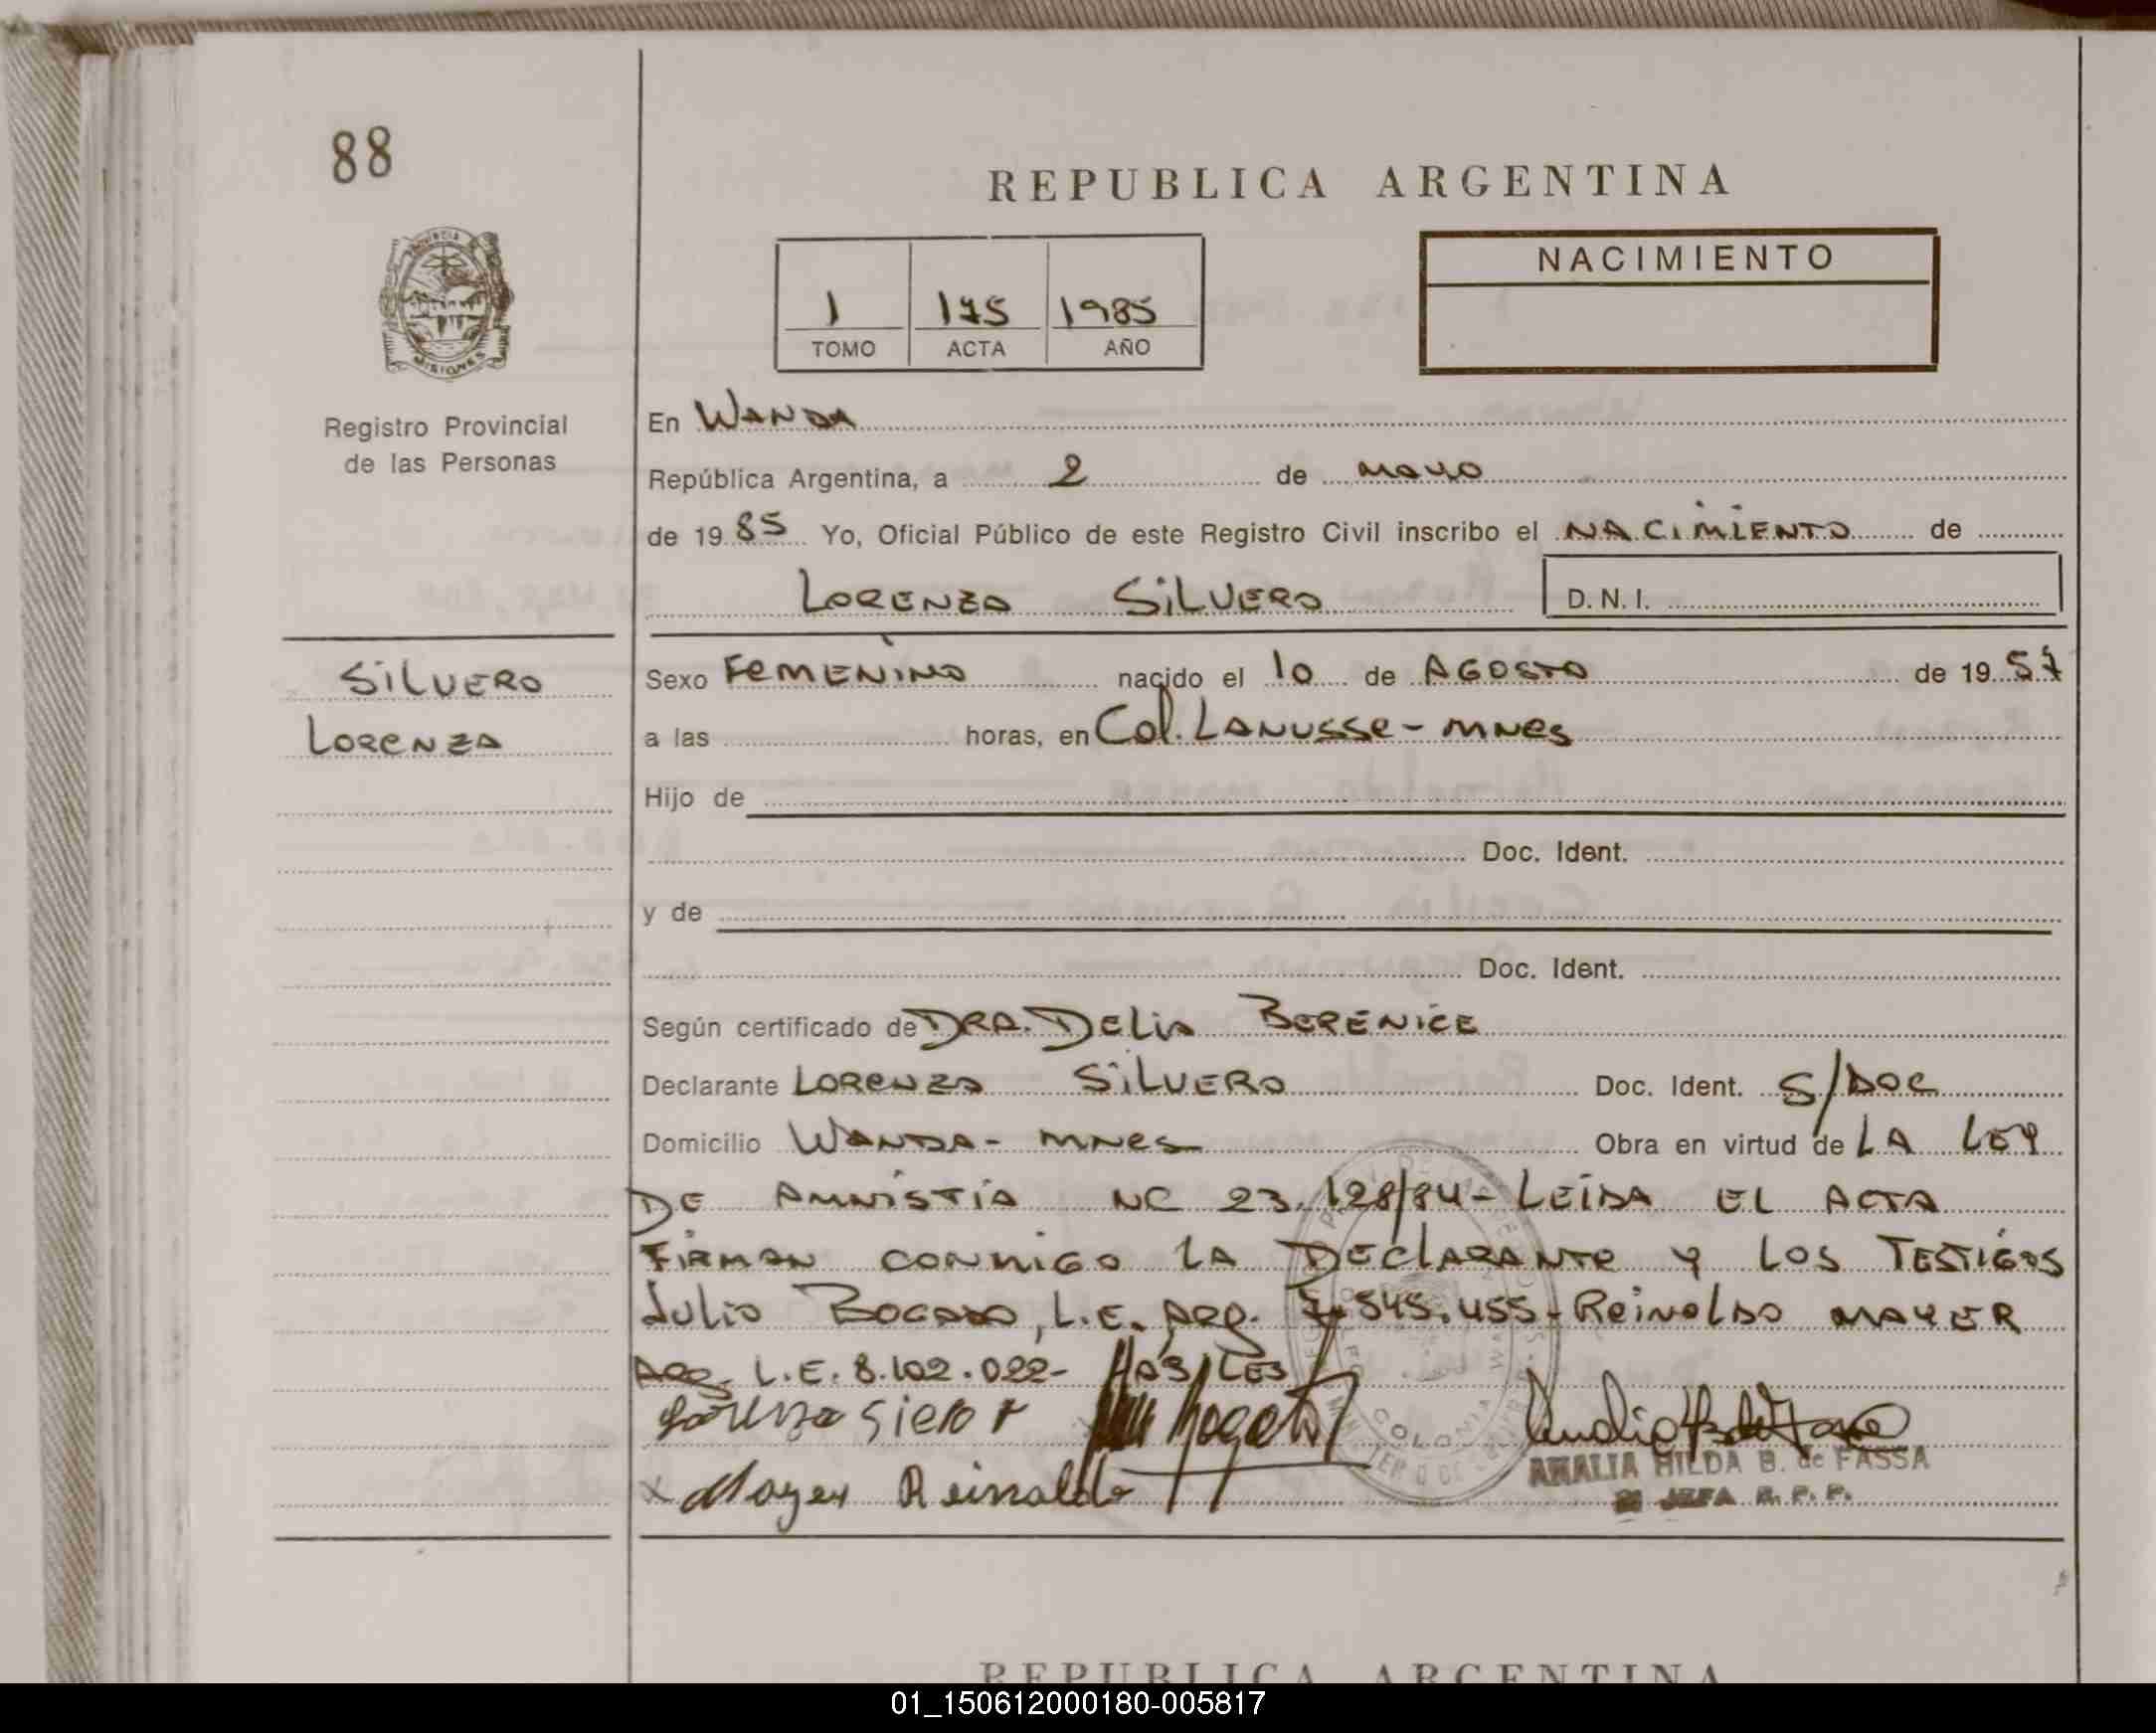 88
REPUBLICA ARGENTINA
PROVINCIA
MISIONES
1 175 1985
TOMO ACTA AÑO
NACIMIENTO
Registro Provincial
de las Personas
En WANDA
República Argentina, a 2 de mayo
de 1985 Yo, Oficial Público de este Registro Civil inscribo el NACIMIENTO de
LORENZA SILVERO D.N.I.
SILVERO
LORENZA
Sexo FEMENINO nacido el 10 de AGOSTO de 1957
a las horas, en Col. LANUSSE - MNES
Hijo de
Doc. Ident.
y de
Doc. Ident.
Según certificado de DRA. DELIA BERENICE
Declarante LORENZA SILVERO Doc. Ident. S/DOC
Domicilio WANDA - MNES Obra en virtud de LA LEY
DE AMNISTIA NC 23.128/84 - LEIDA EL ACTA
FIRMAN CONMIGO LA DECLARANTE Y LOS TESTIGOS
JULIO BOGADO, L.E. ARG. 7.545.455 - REINALDO MAYER
ARG. L.E. 8.102.022 - HÁBILES
Lorenza
x Mayer Reinaldo
AMALIA HILDA B. de FASSA
JEFA R. P. P.
COLONIA WANDA
REPUBLICA ARGENTINA
01_150612000180-005817